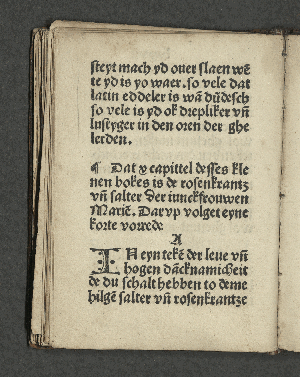 steyt mach yd ouer slaen wē
te yd is yo waer. so vele dat
latin eddeler is wā dūdesch
so vele is yd ok diepliker vn̄
lustyger in den oren der ghe
lerden.
¶ Dat x capittel desses kle
nen bokes is de rosenkrantz
vn̄ salter der iunckfrouwen
Mariē. Dar vp volget eyne
korte vorrede
A
IN eyn tekē der leue vn̄
hogen dācknamicheit
de du schalt hebben to deme
hilgē salter vn̄ rosenkrantze